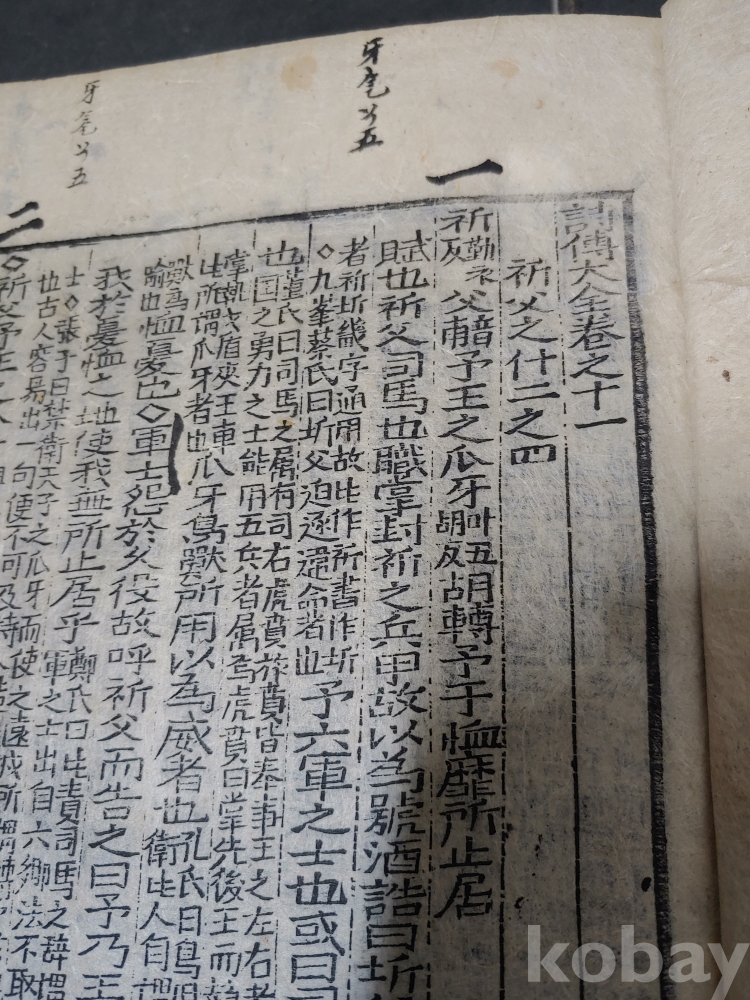 牙
五
牙
五
一
詩傳大全卷之十一
祈父之什二之四
祈勤衣反父䩉予王之爪牙叶五胡反胡轉予于恤靡所止居
賦也祈父司馬也職掌封祈之兵甲故以為號酒誥曰圻
者祈圻畿字通用故此作祈書作圻
◇九峯蔡氏曰圻父迫逐違命者也予六軍之士也或曰司
也董氏曰司馬之屬有司右虎賁旅賁皆奉事王之左右者
也国之勇力之士能用五兵者属焉虎賁曰掌先後王而
掌執戈盾夾王車
此所謂爪牙者也爪牙鳥獸所用以為威者也孔氏曰鳥
獸為恤憂也◇軍士怨於久役故呼祈父而告之曰予乃王
喻也
衛此人自
我於憂恤之地使我無所止居乎鄭氏曰此責司馬之辞
士◇張子曰禁衛天子之爪牙而使之遠戍所
軍之士出自六鄉法不取
也古人容易出一句便不可及
二
◇祈父予王之
kobay